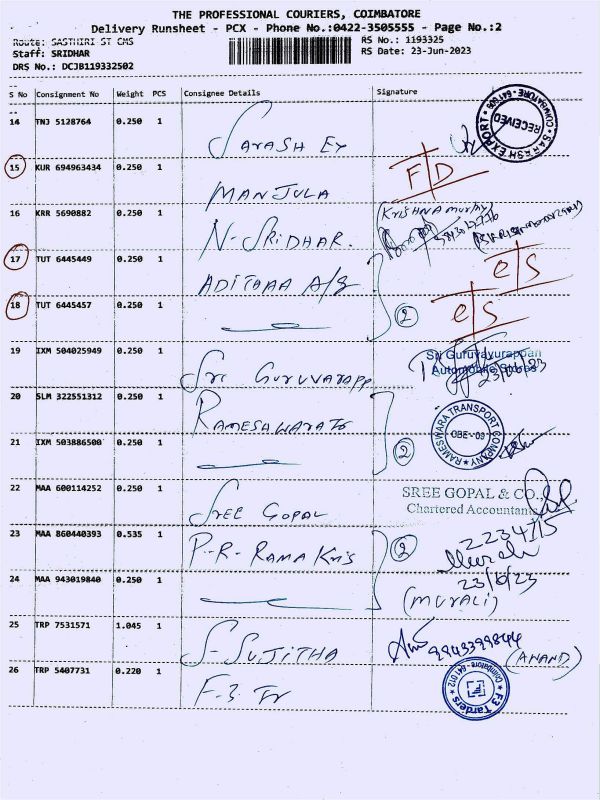 THE PROFESSIONAL COURIERS, COIMBATORE
Delivery Runsheet - PCX - Phone No.:0422-3505555 - Page No.:2
Route: SASTHIRI ST CMS
RS No.: 1193325
Staff: SRIDHAR
RS Date: 23-Jun-2023
DRS No.: DCJB119332502
S No Consignment No Weight PCS Consignee Details Signature
14 TNJ 5128764 0.250 1 SARASH EX
SARASH EXPORT COIMBATORE
RECEIVED
15 KUR 694963434 0.250 1 MANJULA F/D
16 KRR 5690882 0.250 1 N-SRIDHAR.
(KRISHNA murthy)
17 TUT 6445449 0.250 1 ADITHAA A/S e/s
18 TUT 6445457 0.250 1 2 e/s
19 IXM 504025949 0.250 1 Sri GURUVARAPP
Sri Guruvayurappan
Automobile Stores
23/06/23
20 SLM 322551312 0.250 1 RAMESHWARA TR
RAMESWARA TRANSPORT COMPANY
CBE-09
21 IXM 503886500 0.250 1 2
22 MAA 600114252 0.250 1 SREE GOPAL
SREE GOPAL & CO.,
Chartered Accountants
23 MAA 860440393 0.535 1 P-R-RAMA Kris 2
Murali
23/6/23
24 MAA 943019840 0.250 1
(MURALI)
25 TRP 7531571 1.045 1 S-SUJITHA
9943399844
(ANAND)
26 TRP 5407731 0.220 1 F-3 Tr
F3 Tarders Coimbatore-641 012